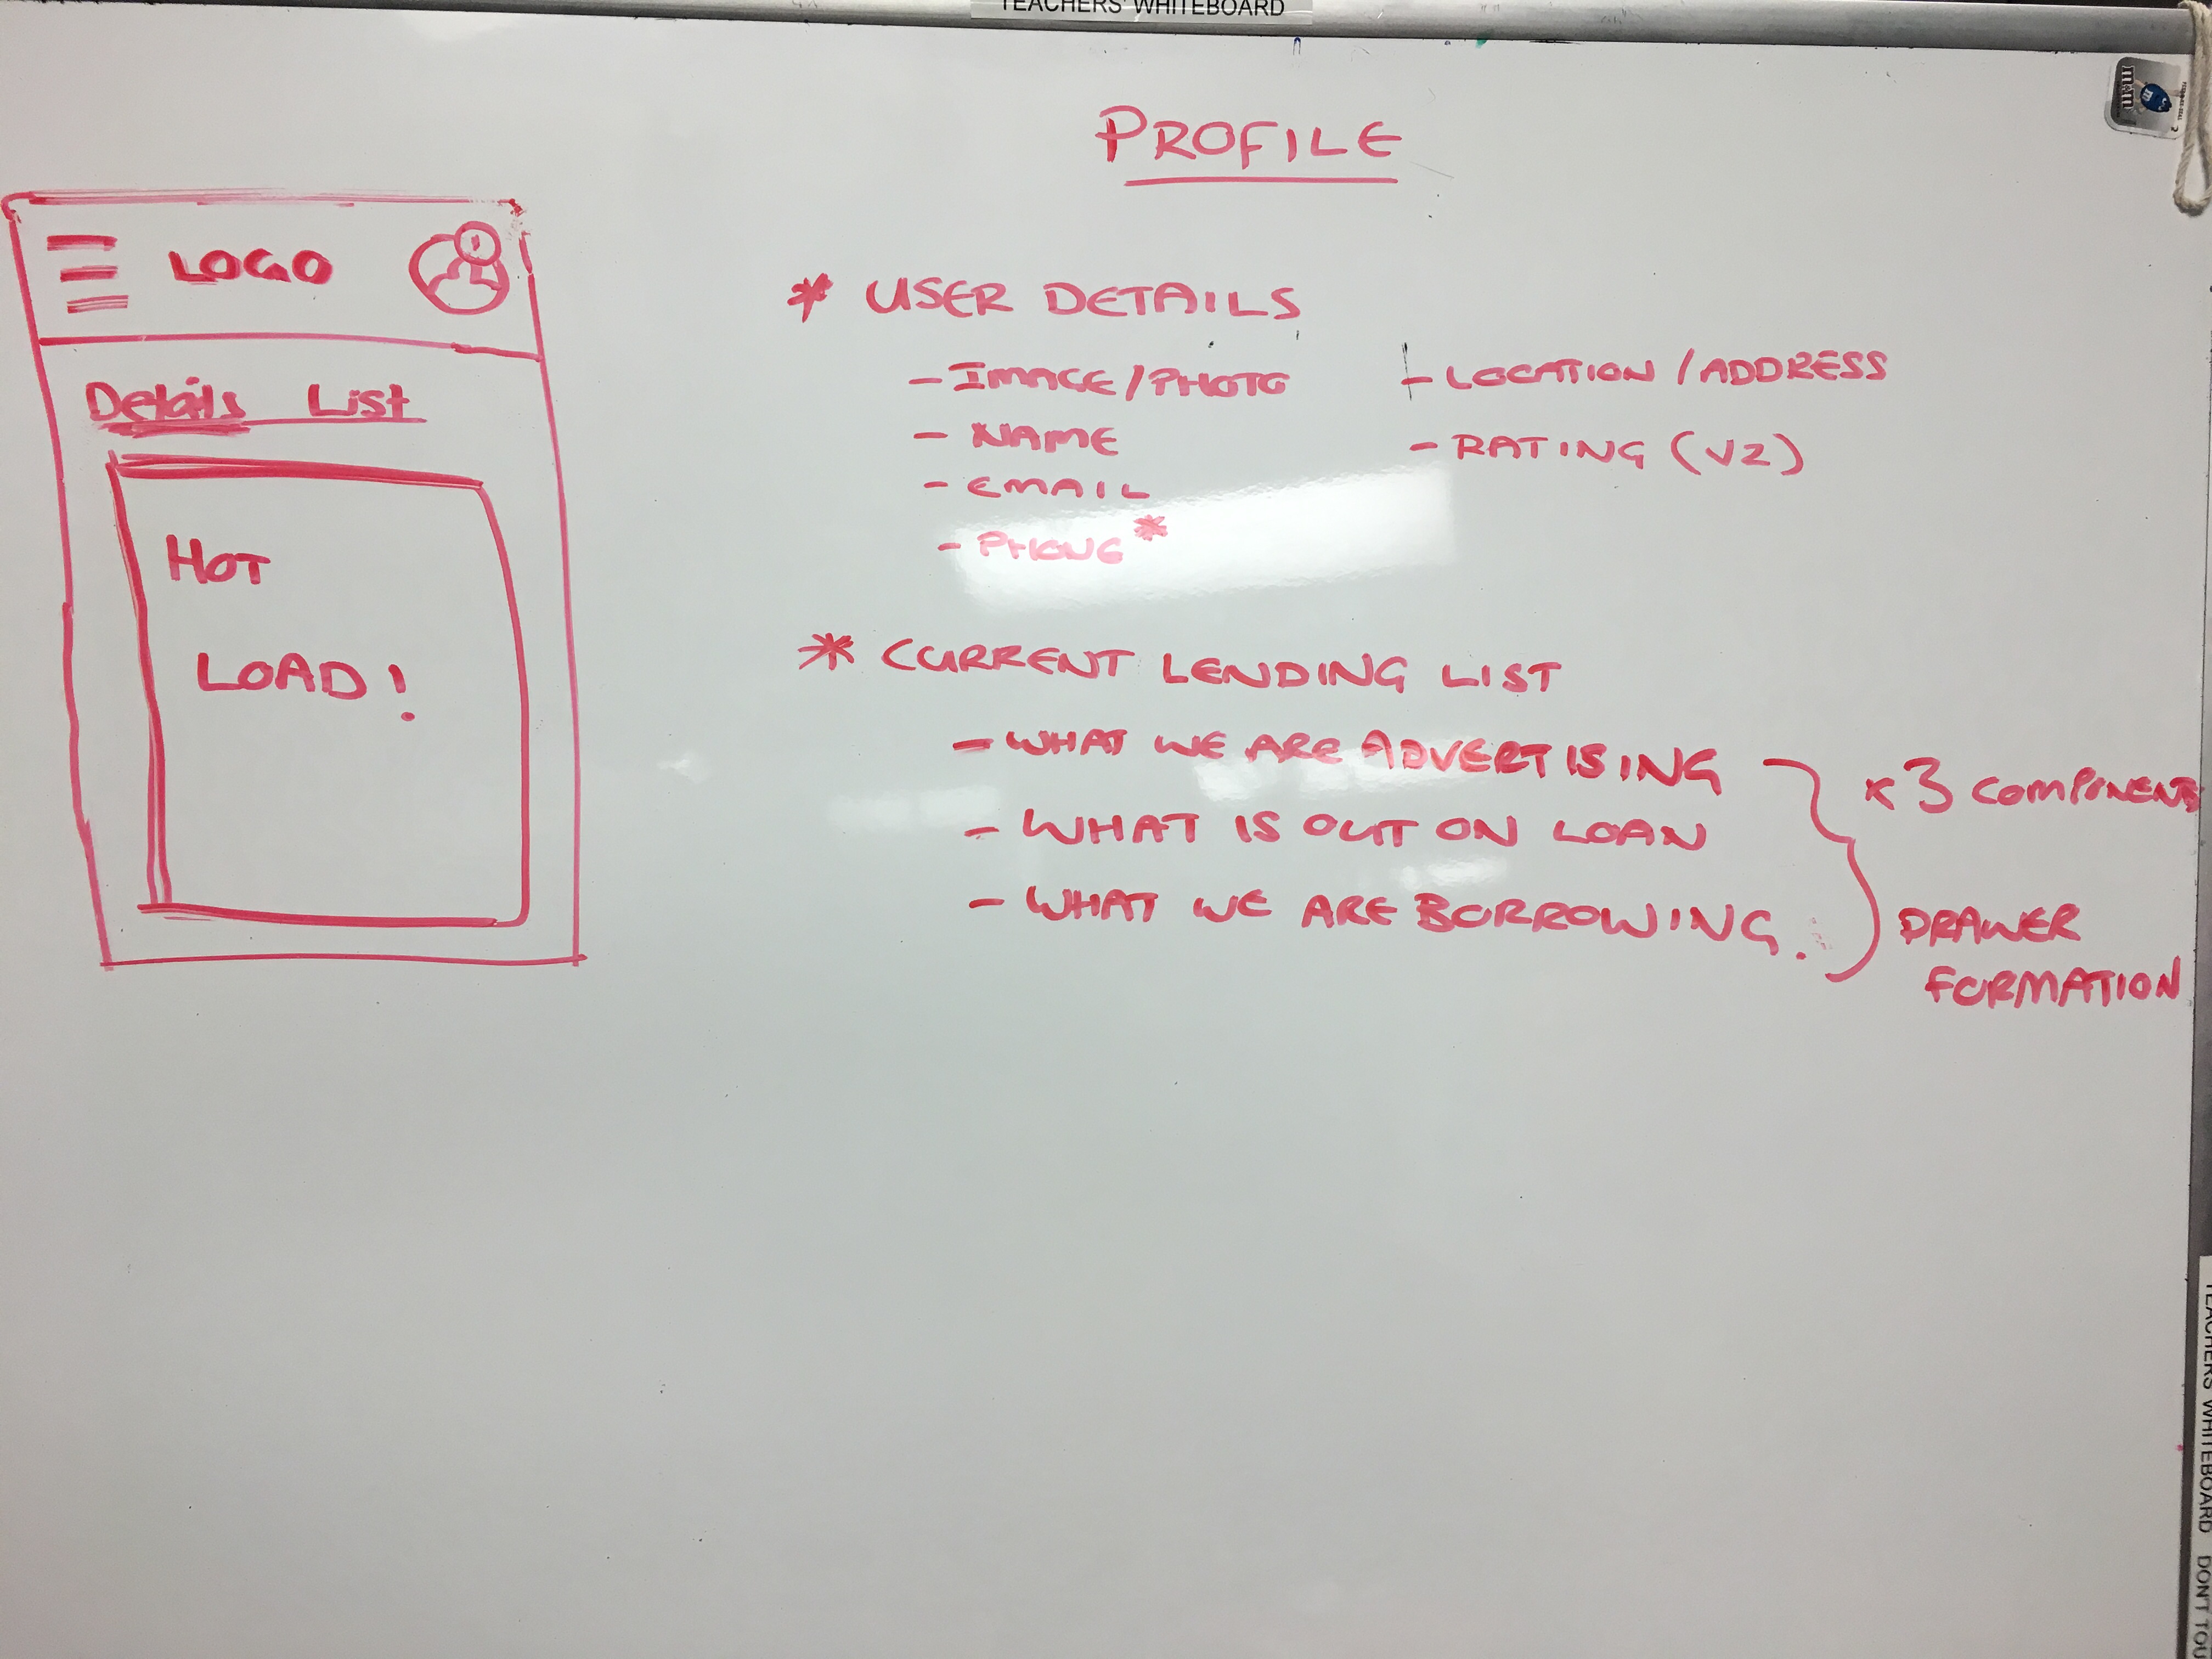 TEACHERS' WHITEBOARD
PROFILE
LOGO
Details List
HOT
LOAD!
* USER DETAILS
- IMAGE/PHOTO
- NAME
- EMAIL
- PHONE*
- LOCATION/ADDRESS
- RATING (V2)
* CURRENT LENDING LIST
- WHAT WE ARE ADVERTISING
- WHAT IS OUT ON LOAN
- WHAT WE ARE BORROWING.
x3 COMPONENTS
DRAWER
FORMATION
m&m
TEACHERS WHITEBOARD DON'T TOU